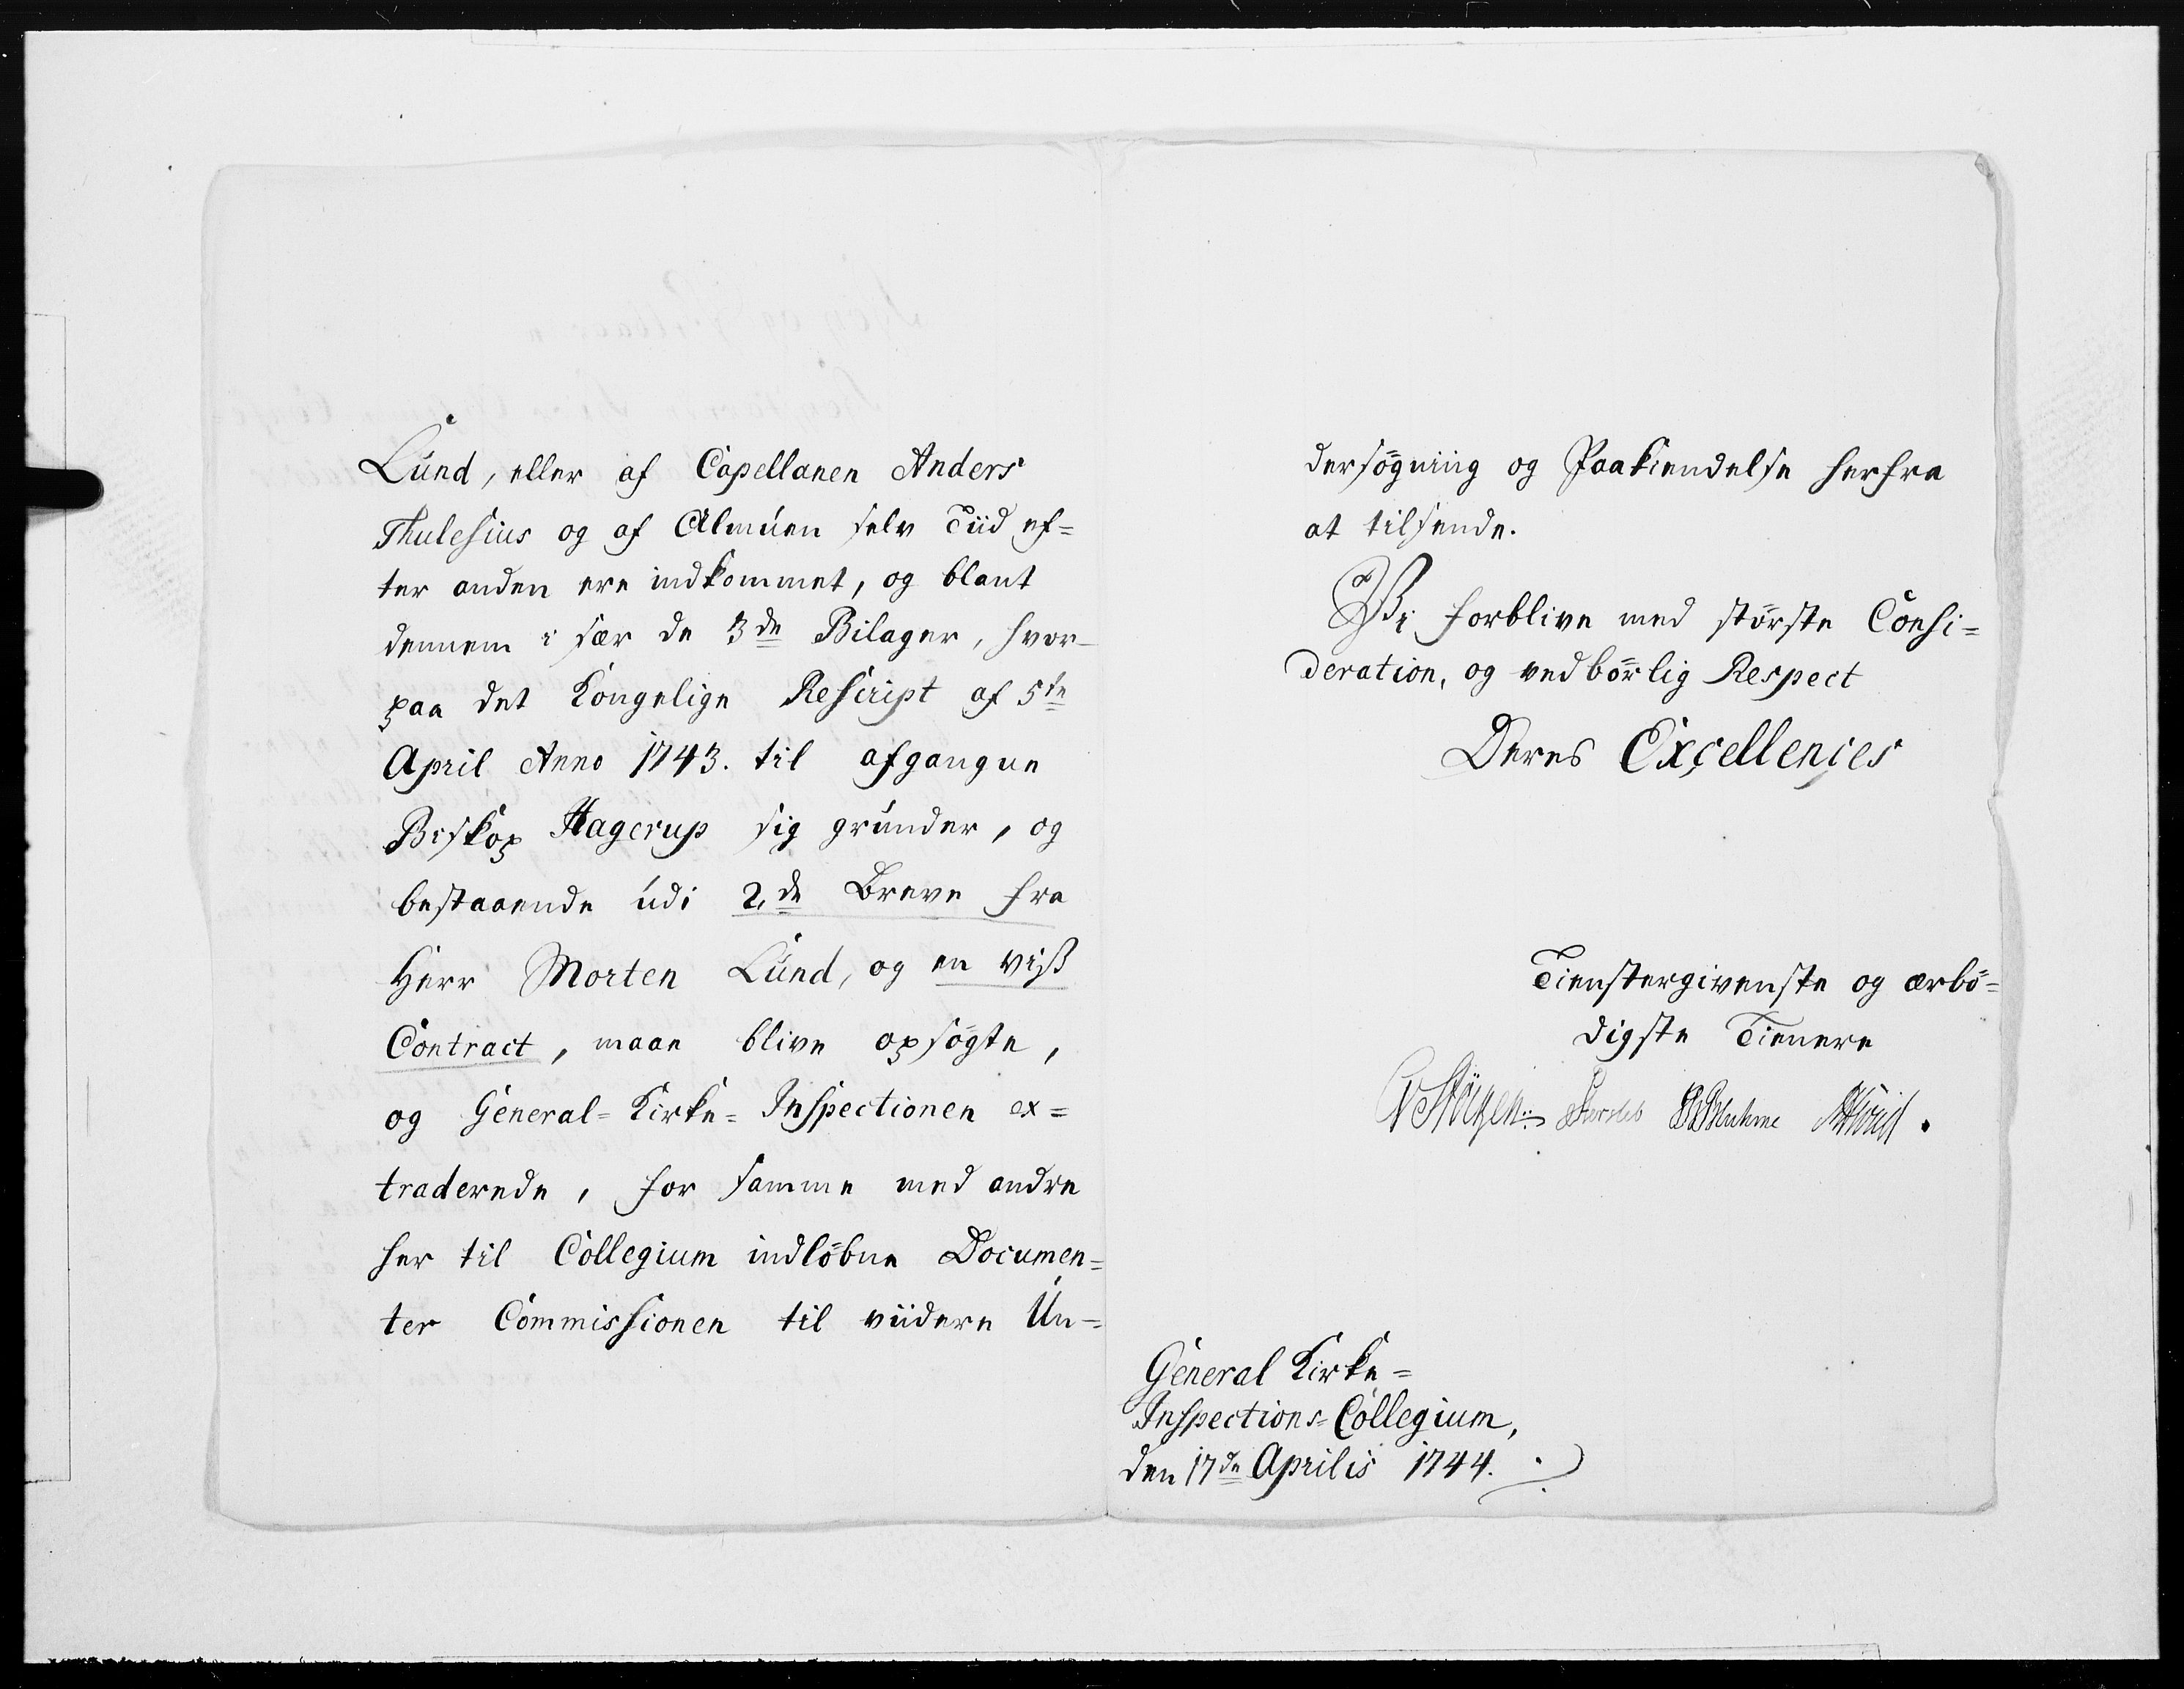 Lund, eller af Capellanen Anders
Thulesius og af Almuen selv Tiid ef=
ter anden ere indkommet, og blant
dennem i sær de 3de Bilager, hvor-
paa det Kongelige Rescript af 5te
April Anno 1743. til afgangne
Biskop Hagerup sig grunder, og
bestaaende udi 2de Breve fra
Herr Morten Lund, og en viss
Contract, maae blive opsögte,
og General=Kirke=Inspectionen ex=
traderede, for samme med andre
her til Collegium indløbne Documen=
ter Commissionen til viidere Un=
dersögning og Paakiendelse herfra
at tilsende.
Vi forblive med störste Consi=
deration, og vedbörlig Respect
Deres Excellences
Tienstergivenste og ærbö=
digste Tienere
Bluhme
General Kirke=
Inspections=Collegium,
den 17de Aprilis 1744.